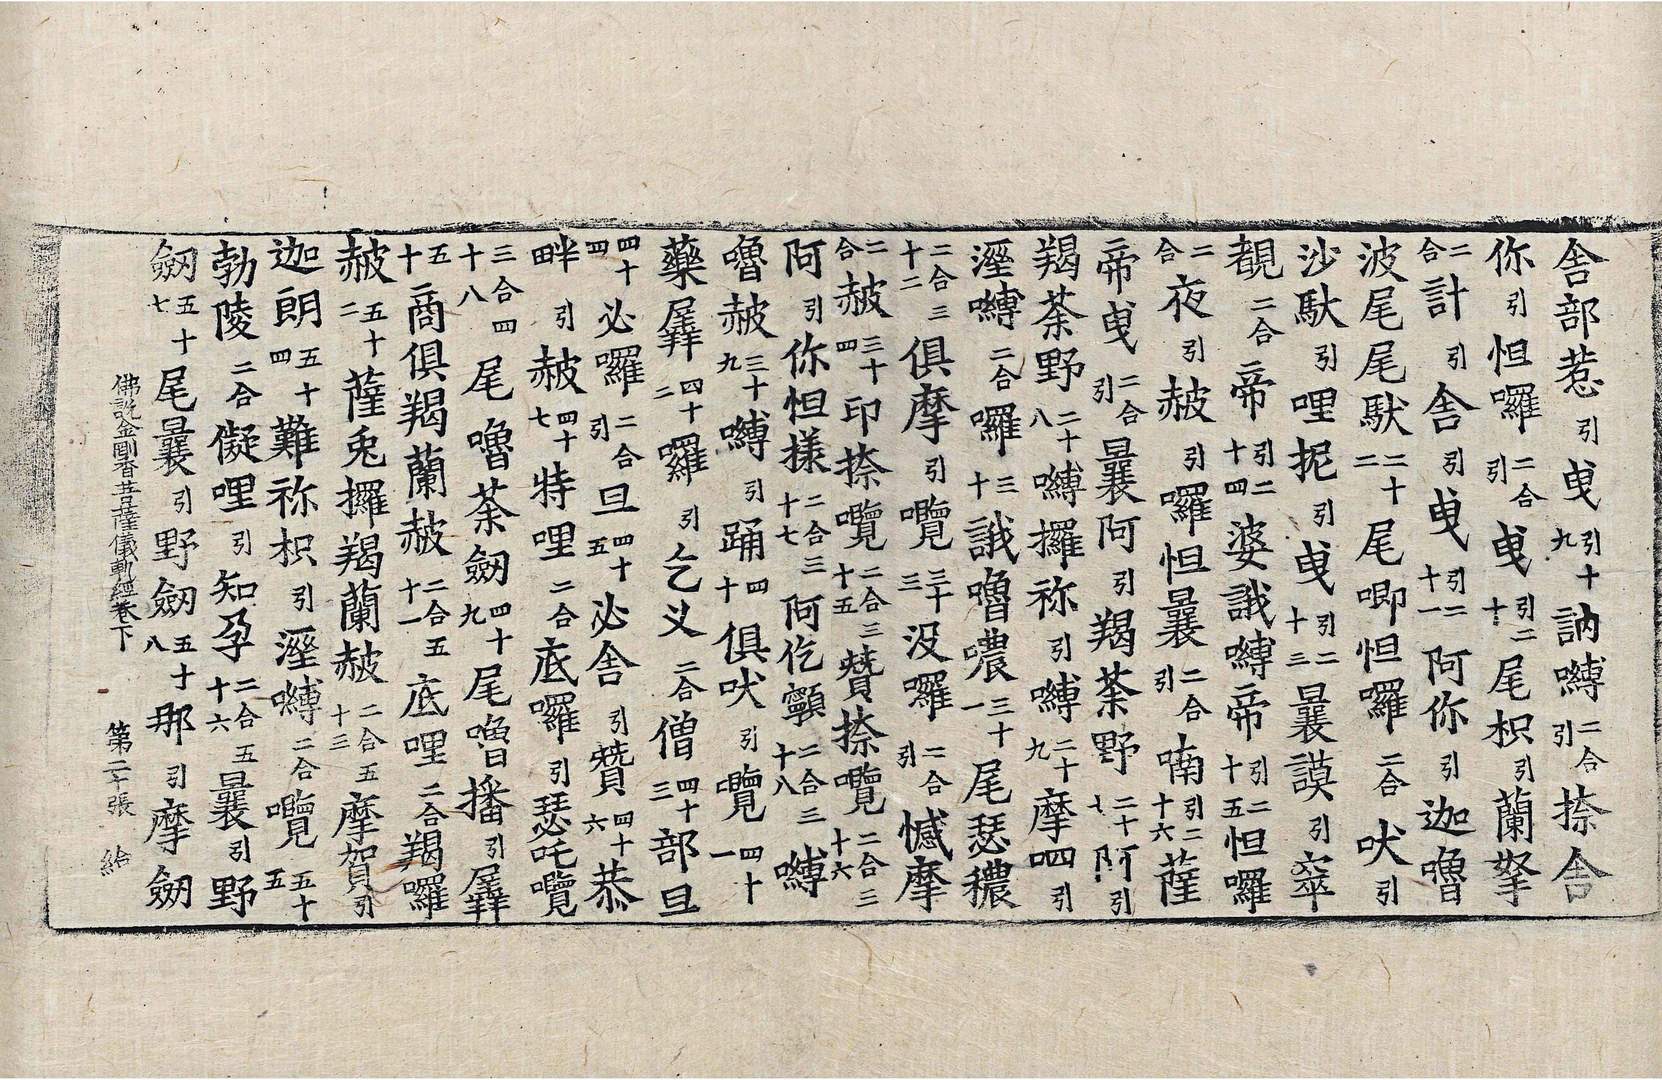 舍部惹引曵引十九訥嚩二合引捺舍
你引怛囉二合引曵引二十尾枳引蘭拏
二合計引舍引曵引二十一阿你引迦嚕
波尾尾馱二十二尾唧怛囉二合吠引
沙馱引哩抳引曵引二十三曩謨引窣
覩二合帝引二十四婆誐嚩帝引二十五怛囉
二合夜引赧引囉怛曩二合引喃引二十六薩
帝曵二合引曩阿引羯荼野二十七阿引
羯荼野二十八嚩攞祢引嚩二十九摩呬引
溼嚩二合囉三十誐嚕噥三十一尾瑟穠
二合三十二俱摩引囕三十三沒囉二合引憾摩
二合赧三十四印捺囕二合三十五贊捺囕二合三十六
阿引你怛樣二合三十七阿仡顰二合三十八嚩
嚕赧三十九嚩引踊四十俱吠引囕四十一
藥羼四十二囉引乞义二合僧四十三部旦
四十四必囉二合引旦四十五必舍引贊四十六恭
畔引赧四十七特哩二合底囉引瑟吒囕
三合四十八尾嚕荼劒四十九尾嚕播引羼
五十商俱羯蘭赧二合五十一底哩二合羯囉
赧五十二薩兎攞羯蘭赧二合五十三摩賀引
迦朗五十四難祢枳引溼嚩二合囕五十五
勃陵二合儗哩引知孕二合五十六曩引野
劒五十七尾曩引野劒五十八那引摩劒
佛說金剛香菩薩儀軌經卷下 第二十張 給